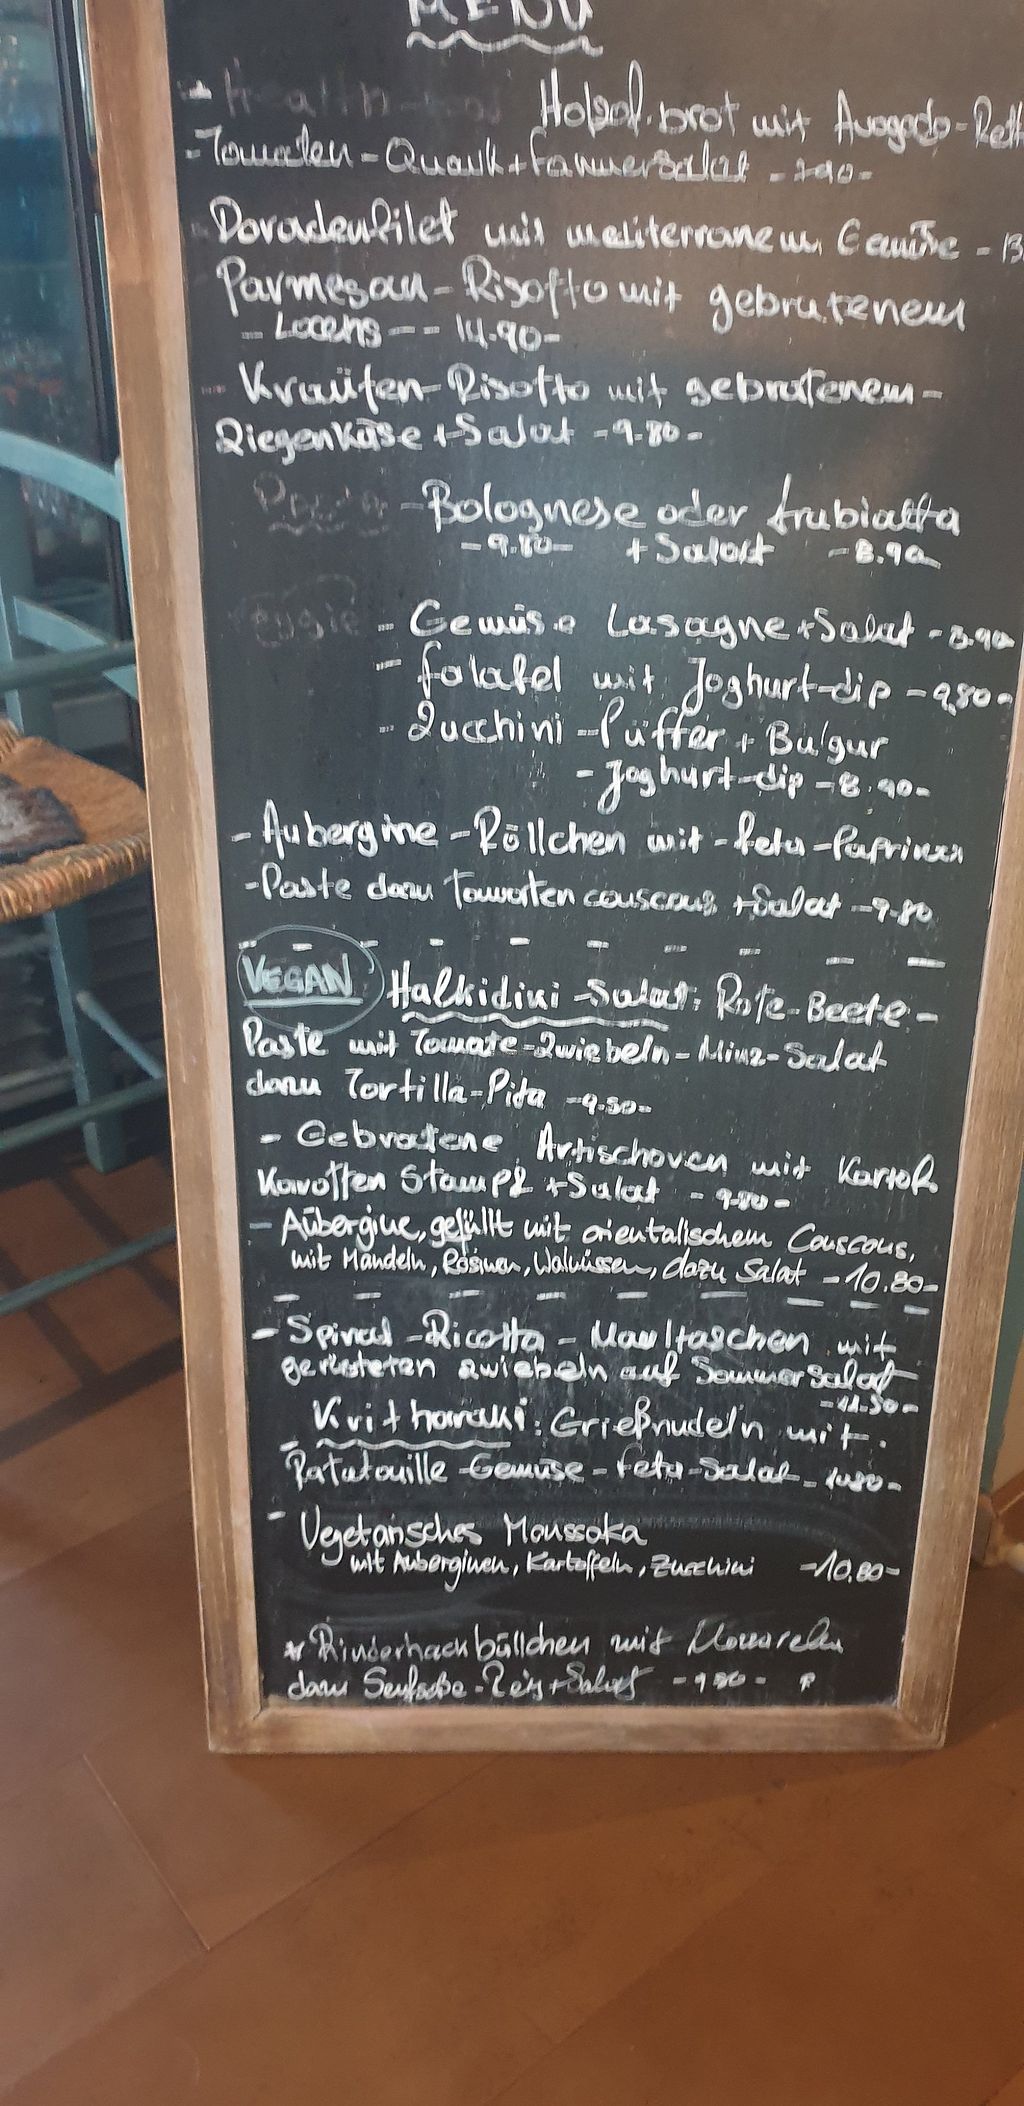 MENU
Holzof.brot mit Avogado-Rett
-Tomaten-Quark+Farmersalat -7.90-
Doradenfilet mit mediterranem Gemüse - 13
Parmesan-Risotto mit gebratenem
- Lachs - - 14.90-
Kräuten-Risotto mit gebratenem-
Ziegenkäse +Salat -9.80-
Pasta -Bolognese oder Arabiatta
-9.80- +Salat -8.90
Veggie - Gemüse Lasagne+Salat -8.90
- Falafel mit Joghurt-dip -9,80-
- Zucchini -Püffer + Bulgur
- Joghurt-dip -8.90-
- Aubergine -Röllchen mit -Feta-Paprika
-Paste dazu Tomaten couscous +Salat -9.80
VEGAN Halkidiki -Salat: Rote-Beete -
Paste mit Tomate-Zwiebeln-Minz-Salat
dazu Tortilla-Pita -9.50-
- Gebratene Artischoken mit Kartof.
Karotten Stampf +Salat -9.80-
- Aubergine, gefüllt mit orientalischem Couscous,
mit Mandeln, Rosinen, Walnüssen, dazu Salat -10.80-
- Spinat -Ricotta - Maultaschen mit
gerösteten zwiebeln auf Sommersalat
-11.50-
- Kritharaki: Grießnudeln mit.
Ratatouille-Gemüse-Feta-Salat -10.80-
- Vegetarisches Moussaka
mit Auberginen, Kartoffeln, Zucchini -10.80-
* Rinderhackbällchen mit
dazu Senfsoße-Reis+Salat -9.80-